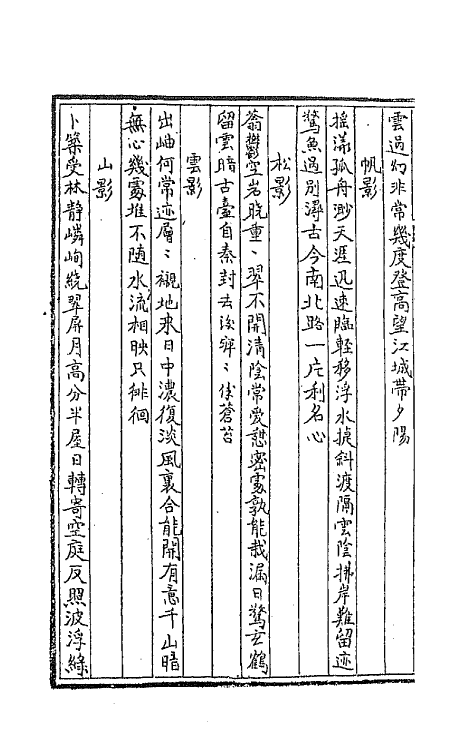 雲過幻非常幾度登高望江城帶夕陽
帆影
搖漾孤舟渺天涯迅速臨輕移浮水摸斜渡隔雲陰拂岸難留迹
驚魚過別潯古今南北路一片利名心
松影
蓊鬱空岩晚重〻翠不開清陰常愛憩密處孰能栽漏日驚玄鶴
留雲暗古臺自秦封去後寂〻伴蒼苔
雲影
出岫何常迹層〻襯地來日中濃復淡風裏合能開有意千山暗
無心幾處堆不隨水流相映只徘徊
山影
卜築受林靜嶙峋繞翠屏月高分半屋日轉寄空庭反照波浮綠